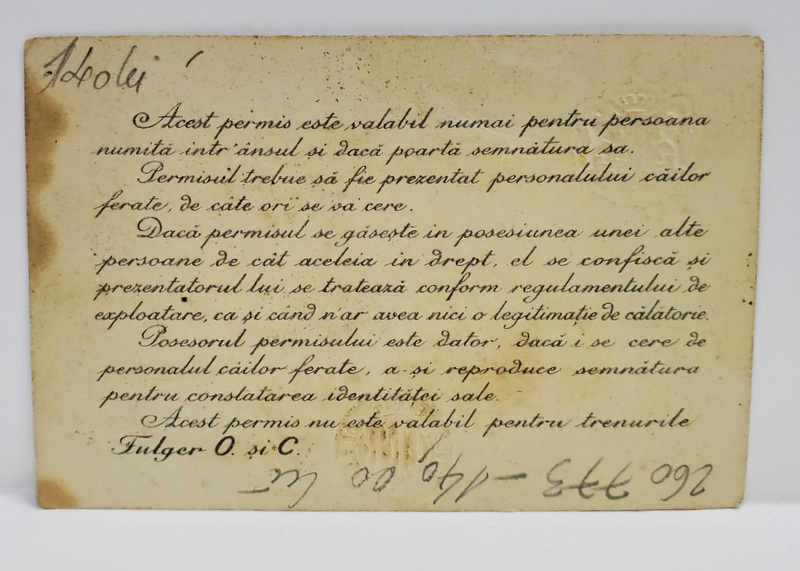 140 lei
Acest permis este valabil numai pentru persoana
numită intr'ânsul și dacă poartă semnătura sa.
Permisul trebue să fie prezentat personalului căilor
ferate, de câte ori se va cere.
Dacă permisul se găsește in posesiunea unei alte
persoane de cât aceleia in drept, el se confiscă și
prezentatorul lui se tratează conform regulamentului de
exploatare, ca și când n'ar avea nici o legitimație de călătorie.
Posesorul permisului este dator, dacă i se cere de
personalul căilor ferate, a-și reproduce semnătura
pentru constatarea identităței sale.
Acest permis nu este valabil pentru trenurile
Fulger O. și C.
260 773 - 140,00 lei